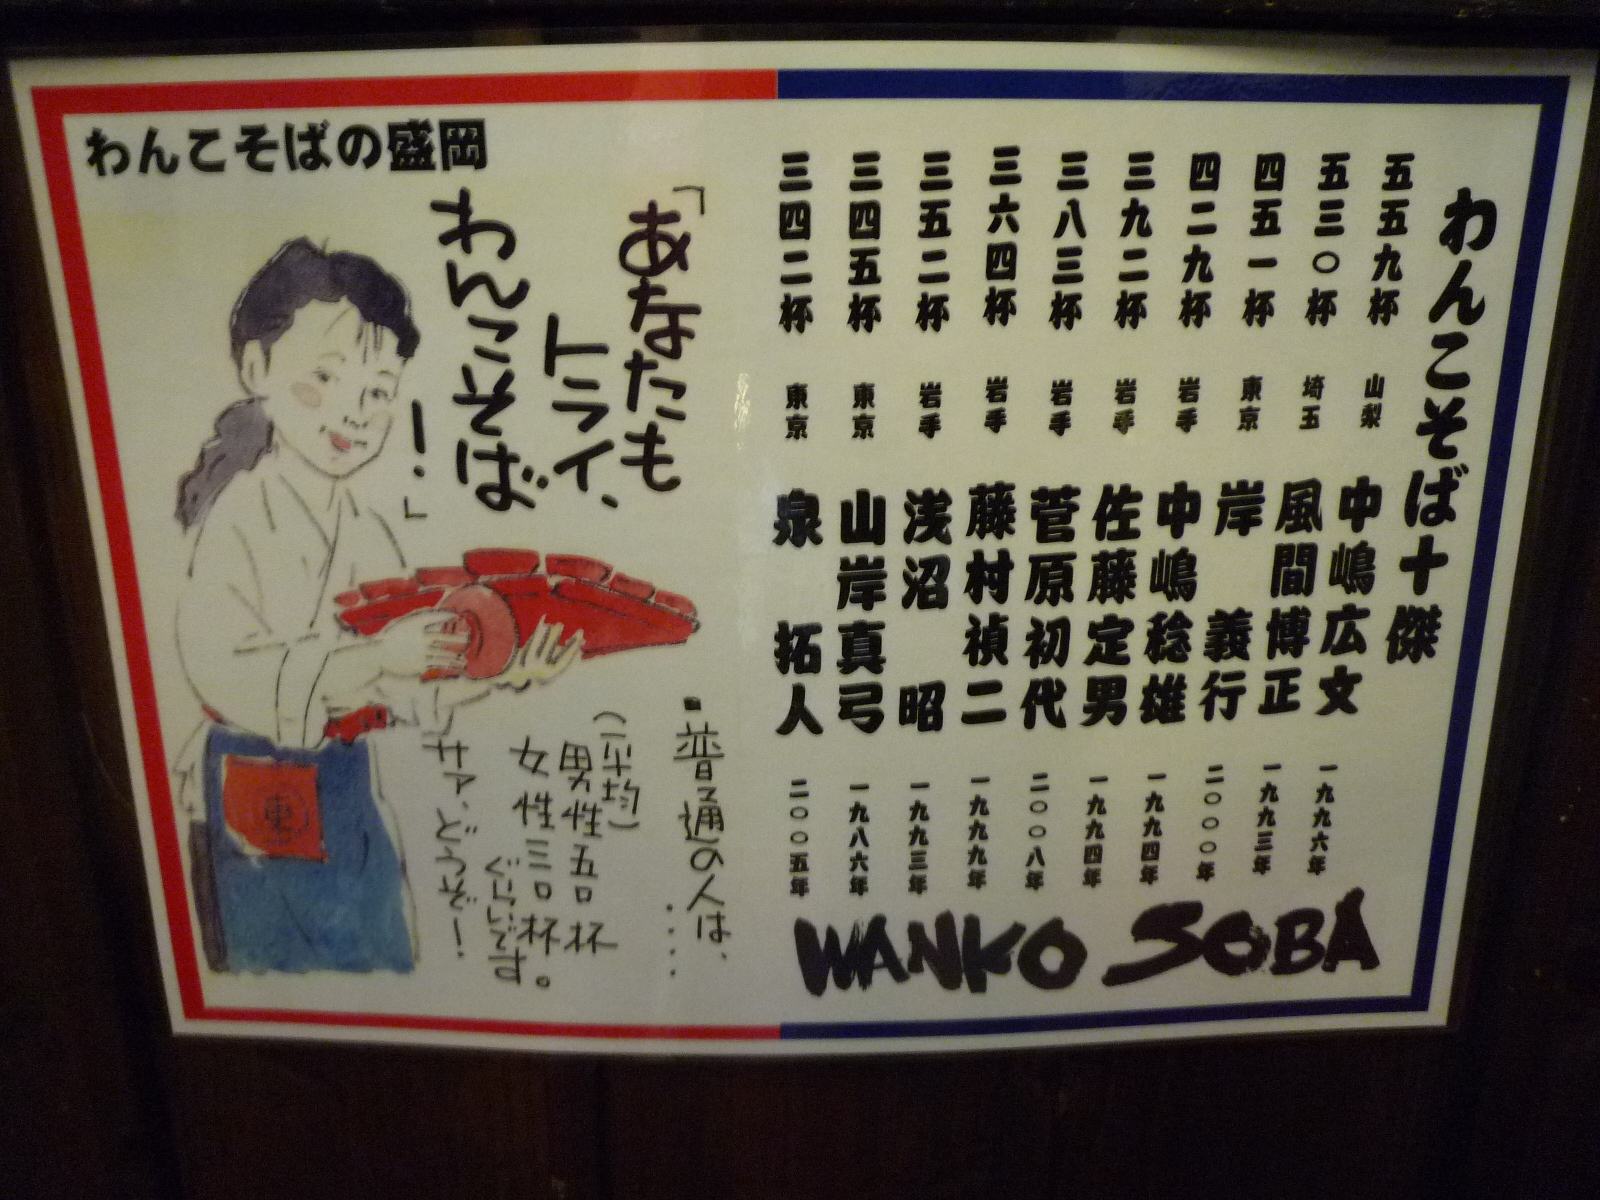 わんこそば十傑
五五九杯 山梨 中嶋広文 一九九六年
五三〇杯 埼玉 風間博正 一九九三年
四五一杯 東京 岸 義行 二〇〇〇年
四二九杯 岩手 中嶋稔雄 一九九四年
三九二杯 岩手 佐藤定男 一九九四年
三八三杯 岩手 菅原初代 二〇〇八年
三六四杯 岩手 藤村禎二 一九九九年
三五二杯 岩手 浅沼 昭 一九九三年
三四五杯 東京 山岸真弓 一九八六年
三四二杯 東京 泉 拓人 二〇〇五年
WANKO SOBA
わんこそばの盛岡
「あなたも
トライ、
わんこそば
！」
▪普通の人は、
....
(平均)
男性五〇杯
女性三〇杯
ぐらいです。
サァ、どうぞー!
東